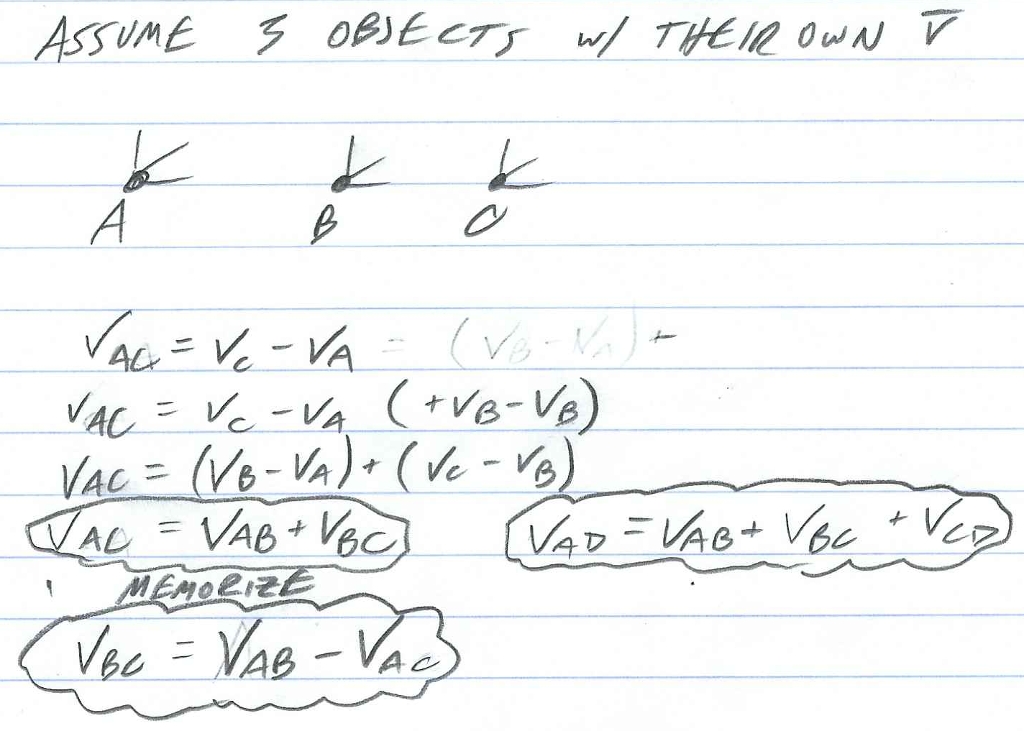 ASSUME 3 OBJECTS w/ THEIR OWN V̄
A B C
V_AC = V_C - V_A = (V_B - V_A) +
V_AC = V_C - V_A (+V_B - V_B)
V_AC = (V_B - V_A) + (V_C - V_B)
V_AC = V_AB + V_BC
V_AD = V_AB + V_BC + V_CD
MEMORIZE
V_BC = V_AB - V_AC